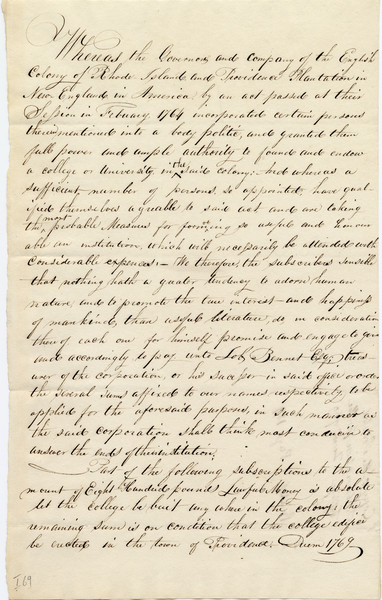 Whereas the Governor and company of the English
Colony of Rhode Island and Providence Plantation in
New England in America by an act passed at their
Session in February 1764 incorporated certain persons
therein mentioned into a body politic, and granted them
full power and ample authority to found and endow
a college or University in the said colony:- And whereas a
sufficient number of persons, so appointed have qual-
ified themselves agreable to said act and are taking
the most probable Measures for forming so useful and honour
able an institution, which will necessarily be attended with
considerable expences:- We therefore, the subscribers sensible
that nothing hath a greater tendency to adorn human
nature, and to promote the true interest and happiness
of mankind, than useful literature, do in consideration
thereof each one for himself promise and engage to give
and accordingly to pay unto Job Bennet Esq. treas
urer of the corporation, or his successor in said office
the several sums affixed to our names respectively, to be
applied for the aforesaid purposes, in such manner as
the said corporation shall think most conducive to
answer the ends of the institution.
Part of the following subscriptions to the a
mount of Eight Hundred pounds Lawful Money is absolute
let the college be built any where in the colony; the
remaining sum is on condition that the college edifice
be erected in the town of Providence. 1769
I 69